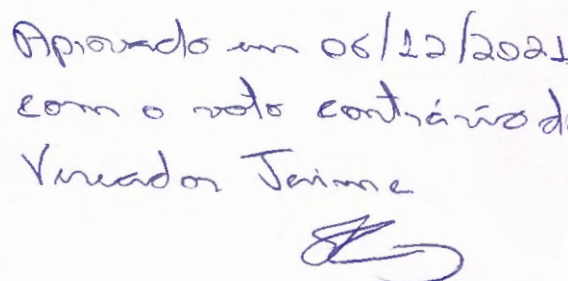 Aprovado em 06/12/2021
com o voto contrário d
Vereador Jaime